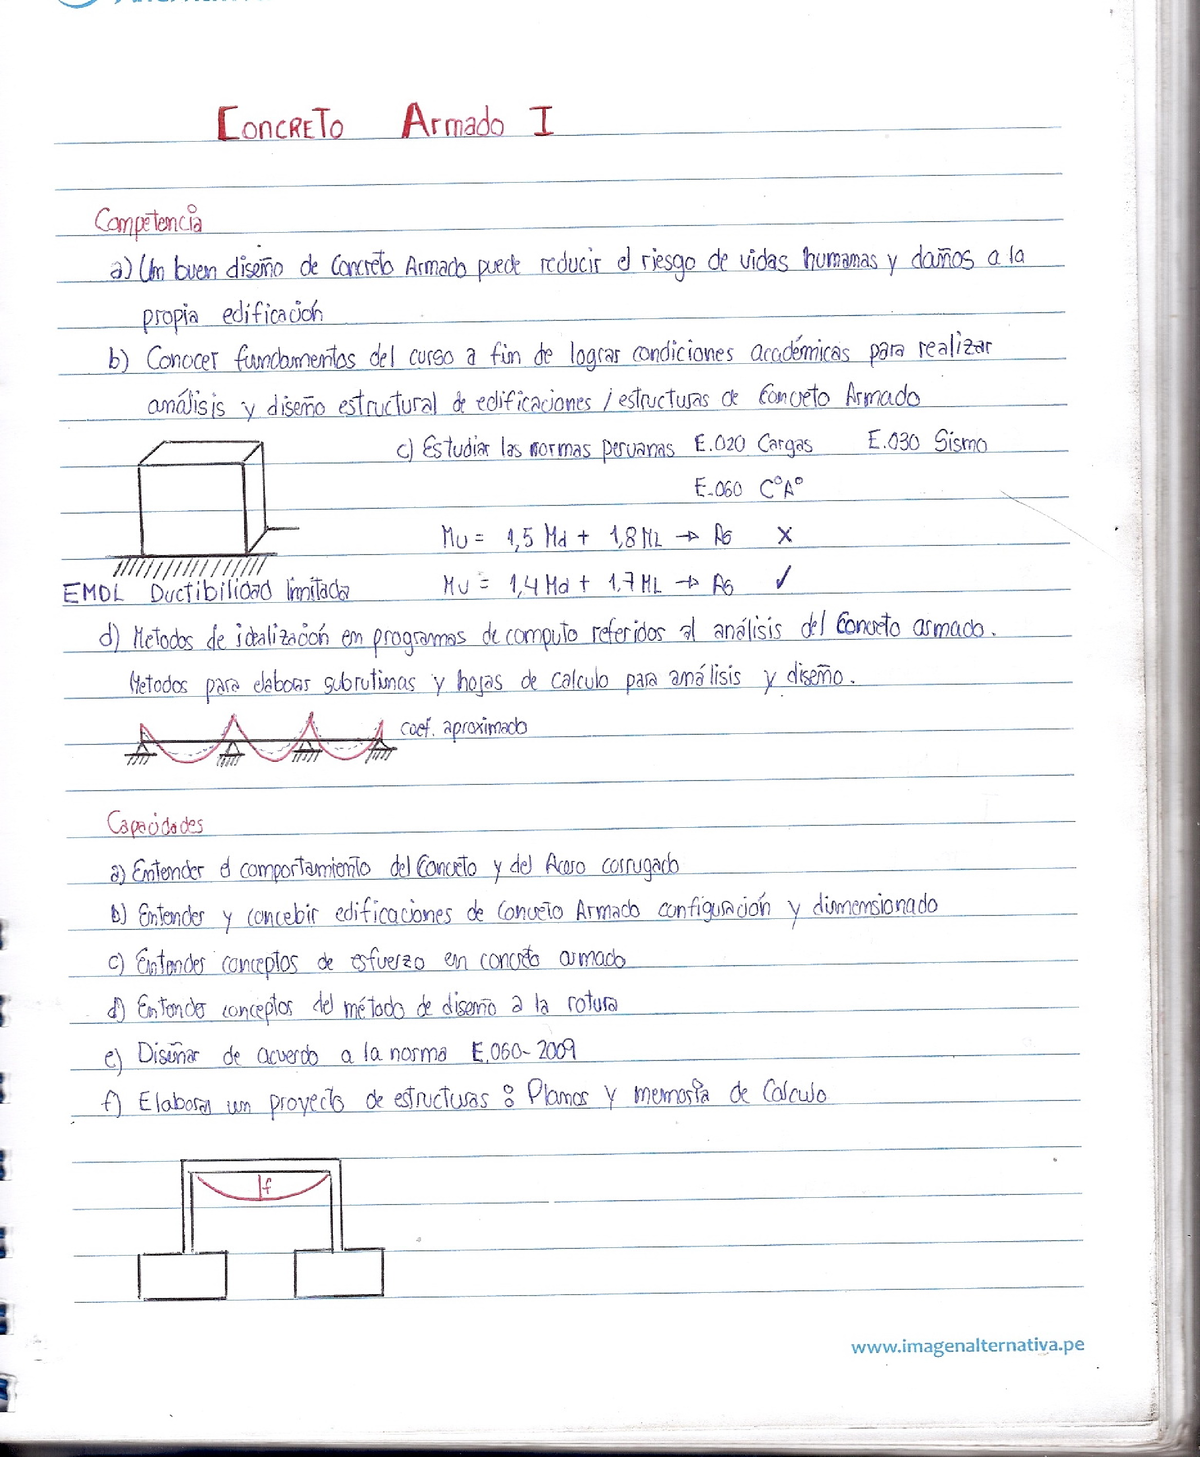 Concreto Armado I
Competencia
a) Un buen diseño de Concreto Armado puede reducir el riesgo de vidas humanas y daños a la
propia edificación
b) Conocer fundamentos del curso a fin de lograr condiciones académicas para realizar
análisis y diseño estructural de edificaciones / estructuras de Concreto Armado
c) Estudiar las normas peruanas E.020 Cargas E.030 Sismo
E-060 C°A°
Mu = 1,5 Md + 1,8 ML → As X
EMDL Ductibilidad limitada
Mu = 1,4 Md + 1.7 ML → As ✓
d) Metodos de idealización en programas de computo referidos al análisis del Concreto armado.
Metodos para elaborar subrutinas y hojas de calculo para análisis y diseño.
coef. aproximado
Capacidades
a) Entender el comportamiento del Concreto y del Acero corrugado
b) Entender y concebir edificaciones de Concreto Armado configuración y dimensionado
c) Entender conceptos de esfuerzo en concreto armado
d) Entender conceptos del método de diseño a la rotura
e) Diseñar de acuerdo a la norma E.060-2009
f) Elaborar un proyecto de estructuras : Planos y memoria de Calculo
f
www.imagenalternativa.pe